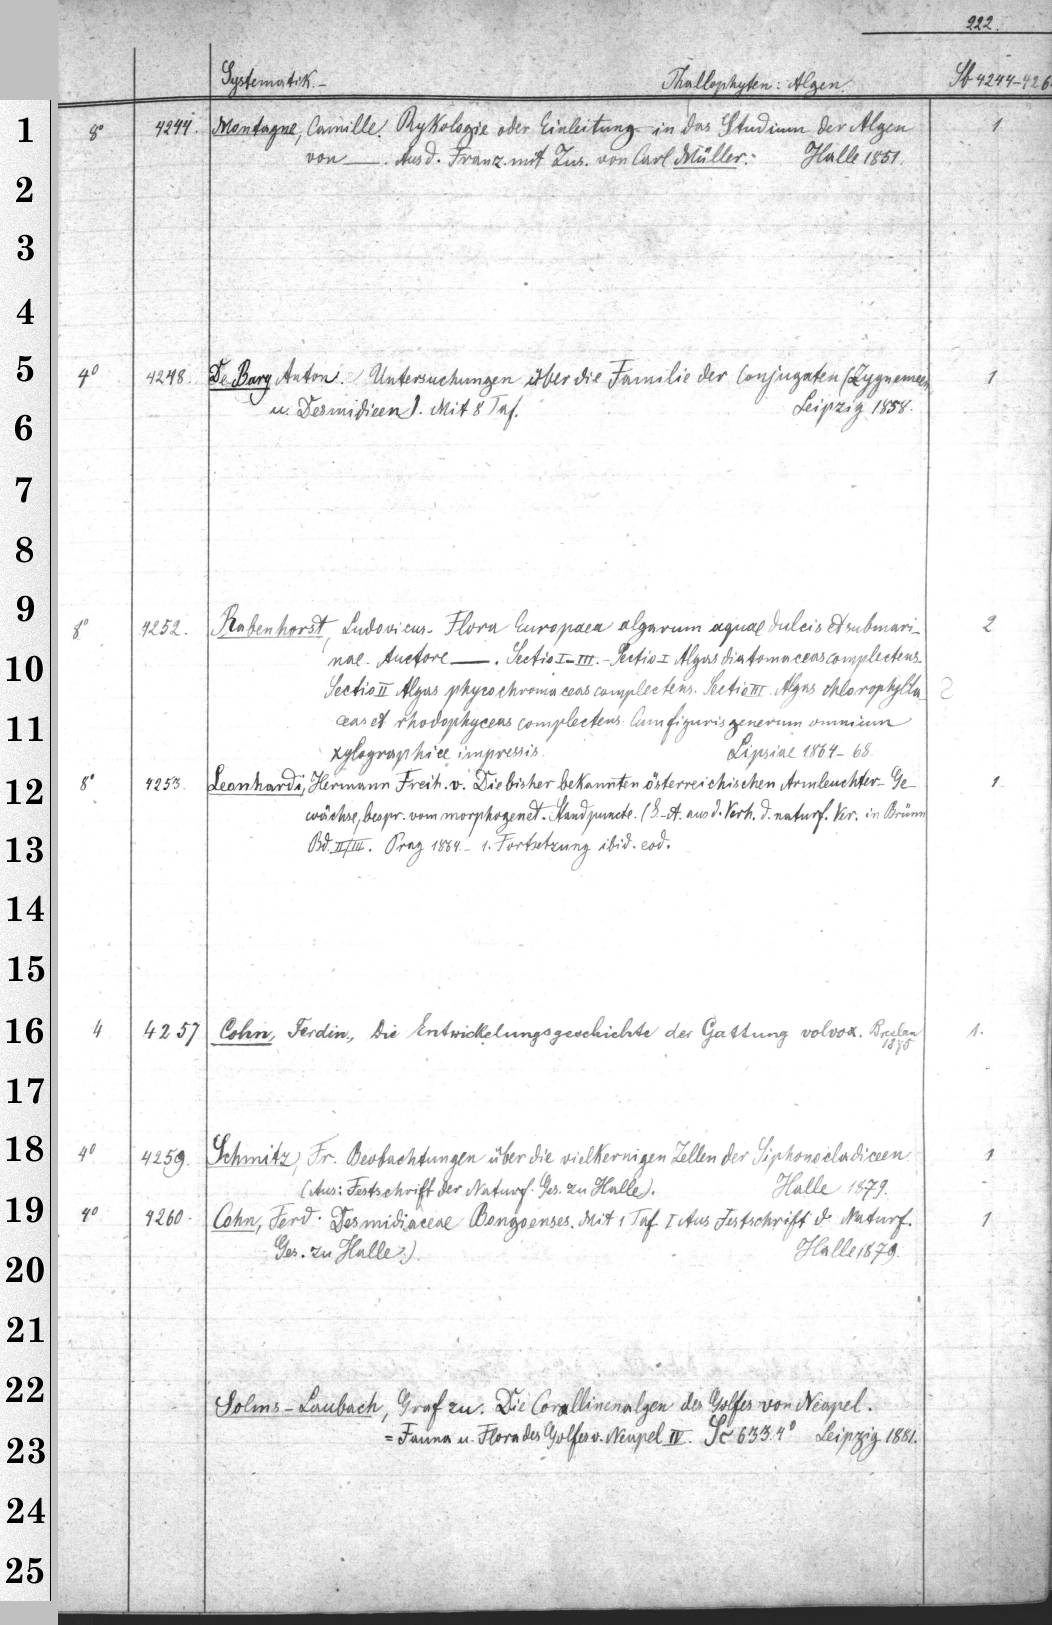 222.
Systematik.- Thallophyten: Algen. Sb 4244-426
1 8° 4244. Montagne, Camille. Phykologie oder Einleitung in das Studium der Algen 1
von —. Aus d. Franz. mit Zus. von Carl Müller.- Halle 1851.
2
3
4
5 4° 4248. De Bary Anton. Untersuchungen über die Familie der Conjugaten (Zygnemeen 1
u. Desmidieen). Mit 8 Taf. Leipzig 1858.
6
7
8
9 8° 4252. Rabenhorst, Ludovicus. Flora Europaea algarum aquae dulcis et submari- 2
10 nae. Auctore —. Sectio I-III. - Sectio I Algas diatomaceas complectens.
Sectio II Algas phycochromaceas complectens. Sectio III. Algas chlorophylla-
11 ceas et rhodophyceas complectens. Cum figuris generum omnium
xylographice impressis. Lipsiae 1864-68
12 8° 4253. Leonhardi, Hermann Freih. v. Die bisher bekannten österreichischen Armleuchter-Ge- 1
wächse, bespr. vom morphogenet. Standpuncte. (S.-A. aus d. Verh. d. naturf. Ver. in Brünn
13 Bd. II/III. Prag 1864.- 1. Fortsetzung ibid. eod.
14
15
16 4 4257 Cohn, Ferdin., Die Entwickelungsgeschichte der Gattung volvox. Breslau 1.
1875
17
18 4° 4259. Schmitz, Fr. Beobachtungen über die vielkernigen Zellen der Siphonocladiceen 1
(Aus: Festschrift der Naturf. Ges. zu Halle). Halle 1879.
19 4° 4260. Cohn, Ferd. Desmidiaceae Bongoenses. Mit 1 Taf. (Aus Festschrift d. Naturf. 1
Ges. zu Halle.) Halle 1879.
20
21
22 Solms-Laubach, Graf zu. Die Corallinenalgen des Golfes von Neapel.
23 = Fauna u. Flora des Golfes v. Neapel IV. Sc 633.4° Leipzig 1881.
24
25